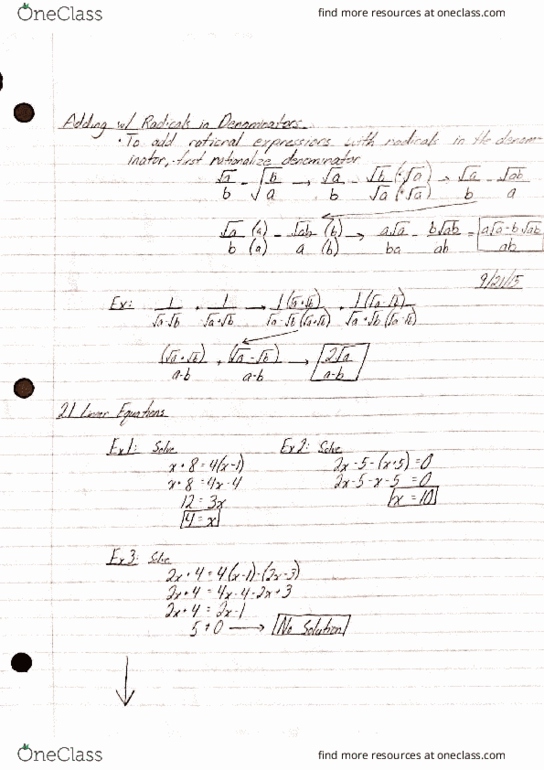 OneClass find more resources at oneclass.com
Adding w/ Radicals in Denominators
• To add rational expressions with radicals in the denom-
inator, first rationalize denominator
√a/b - √(b/a) → √a/b - √b(·√a)/√a(·√a) → √a/b - √ab/a
√a(a)/b(a) - √ab(b)/a(b) → a√a/ba - b√ab/ab = a√a-b√ab/ab
9/21/15
Ex: 1/(√a-√b) + 1/(√a+√b) → 1(√a+√b)/(√a-√b)(√a+√b) + 1(√a-√b)/(√a+√b)(√a-√b)
(√a+√b)/(a-b) + (√a-√b)/(a-b) → 2√a/(a-b)
2.1 Linear Equations
Ex1: Solve
x+8=4(x-1)
x+8=4x-4
12=3x
4=x
Ex2: Solve
2x-5-(x+5)=0
2x-5-x-5=0
x=10
Ex3: Solve
2x+4=4(x-1)-(2x-3)
2x+4=4x-4-2x+3
2x+4=2x-1
5≠0 → No Solution
OneClass find more resources at oneclass.com